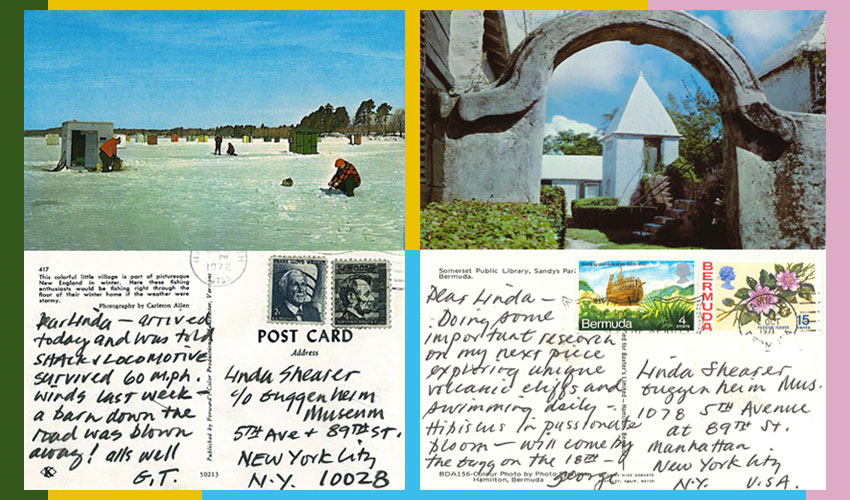 417
This colorful little village is part of picturesque
New England in winter. Here these fishing
enthusiasts would be fishing right through the
floor of their winter home if the weather were
stormy.
Photography by Carleton Allen
Dear Linda – arrived
today and was told
SHACK & LOCOMOTIVE
survived 60 m.p.h.
winds last week –
a barn down the
road was blown
away! alls well
G.T.
K
Published by Forward's Color Productions,
50213
PM
1972
FRANK LLOYD WRIGHT
2¢
POST CARD
Address
Linda Shearer
c/o Guggenheim
Museum
5TH Ave + 89TH ST.
NEW YORK CITY
N.Y. 10028
Somerset Public Library, Sandys Par
Bermuda.
Dear Linda –
Doing some
important research
on my next piece
exploring unique
volcanic cliffs and
swimming daily –
Hibiscus in passionate
bloom – will come by
the Gugg on the 18th –
george
BDA156-Colour Photo by
Hamilton, Bermuda
for Baxter's Limited – Hamilton
Bermuda
4
CENTS
BERMUDA
PASSION FLOWER
15
CENTS
Linda Shearer
Guggenheim Mus.
1078 5TH Avenue
at 89TH St.
Manhattan
New York City
N.Y. U.S.A.